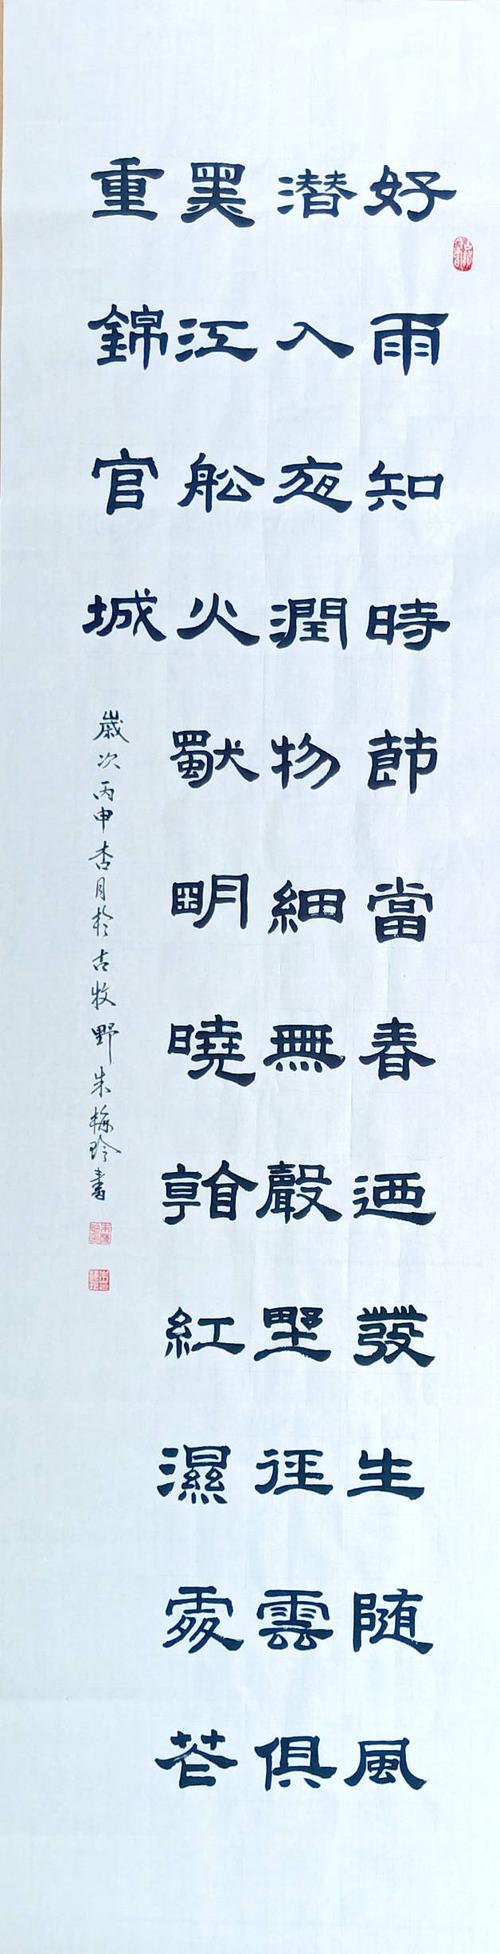 好雨知時節當春迺發生随風
潜入夜潤物細無聲墅徑雲俱
黑江舩火獨明曉看紅濕處花
重錦官城
歲次丙申杏月於古牧野朱梅玲書